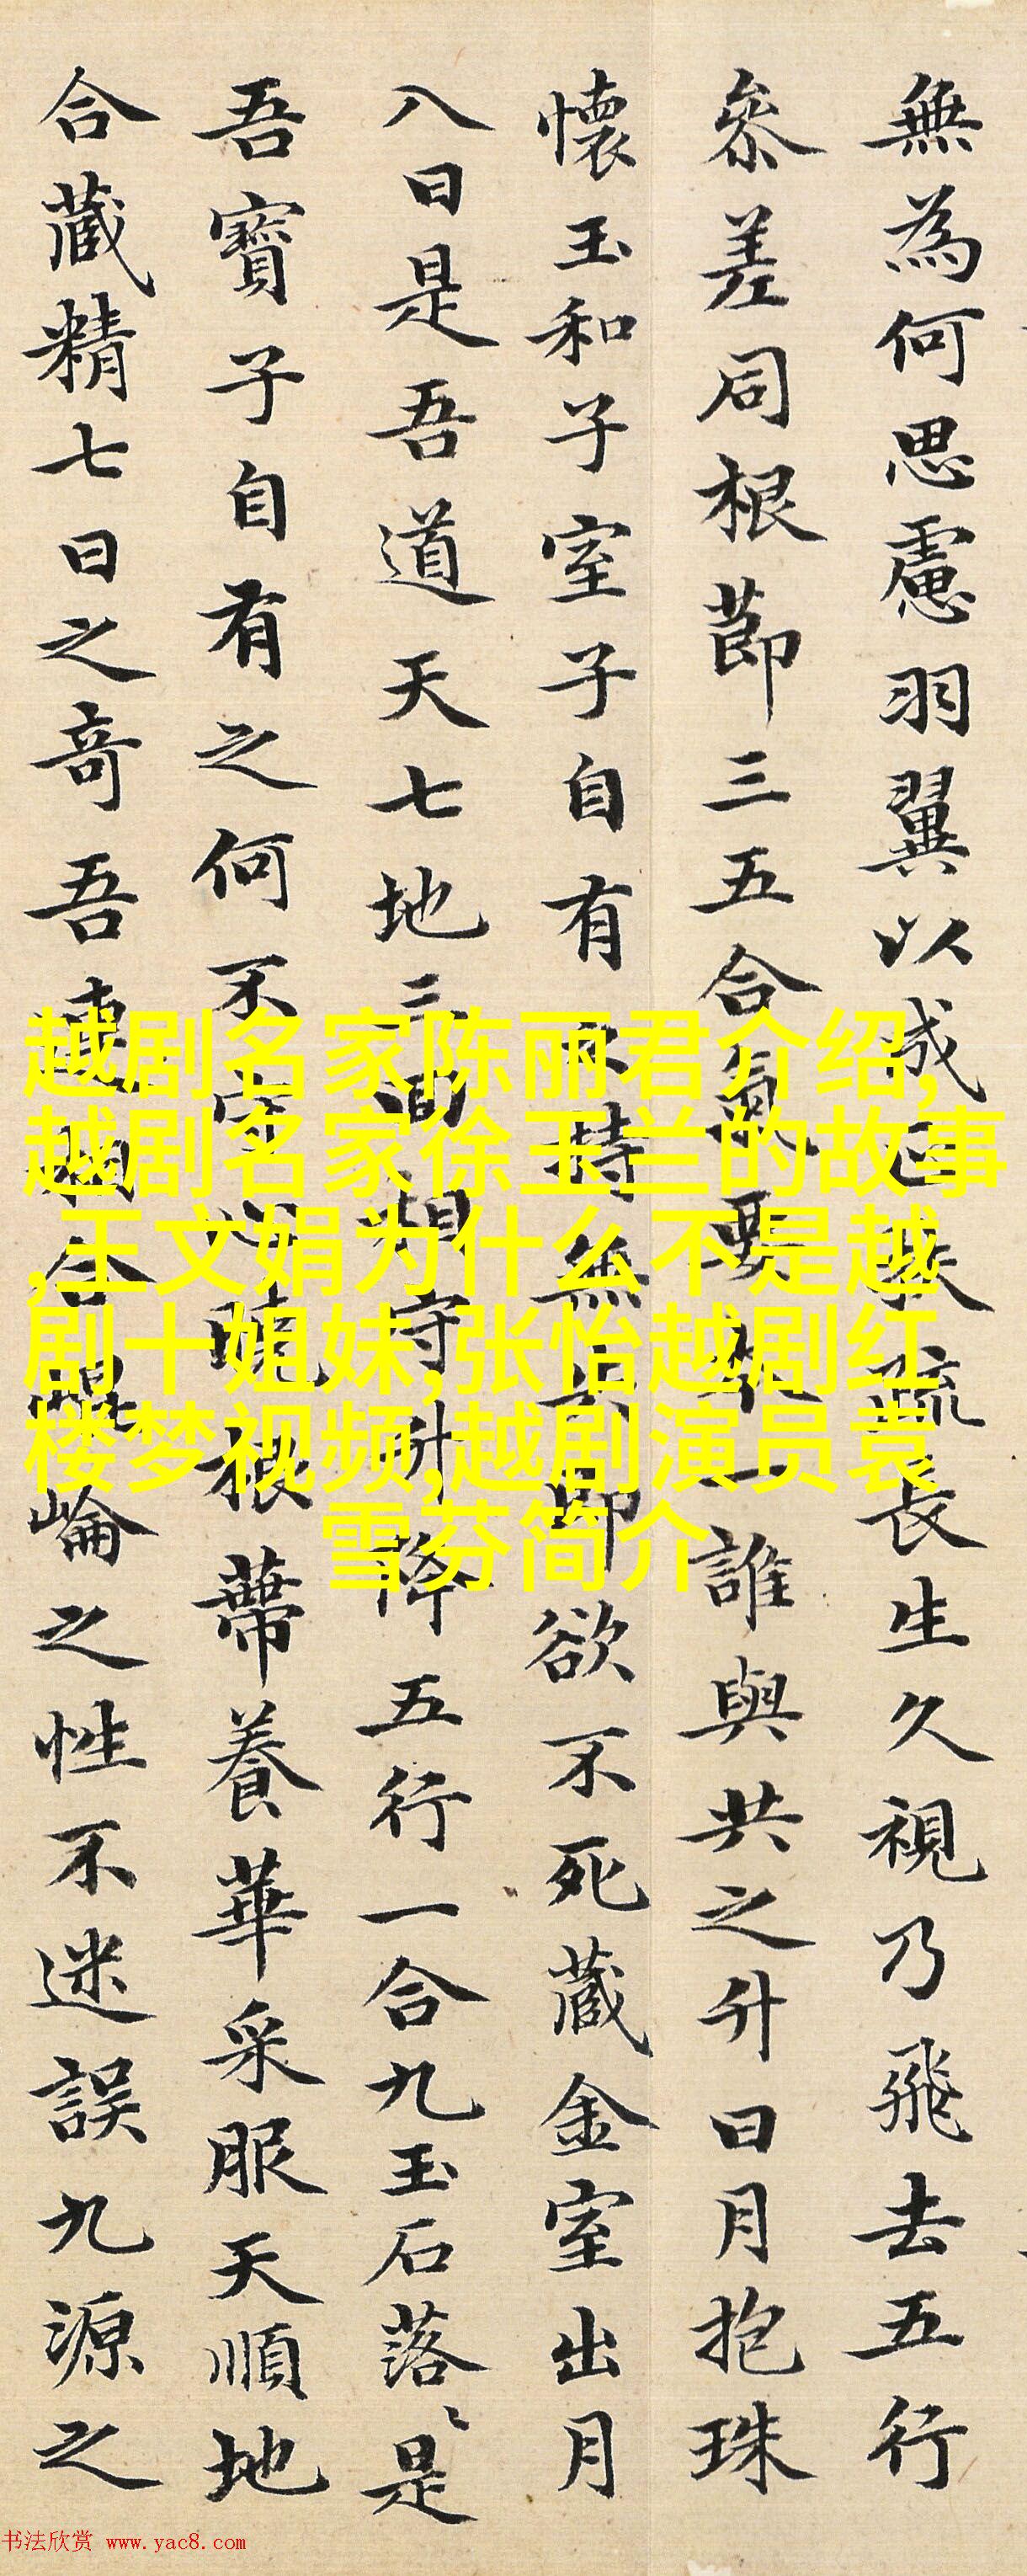 無為何思慮羽翼以成正扶疏長生久視乃飛去五行
參差同根蔕三五合氣要本一誰與共之升日月抱珠
懷玉和子室子自有持無即欲不死藏金室出月
八日是吾道天七地三回相守升降五行一合九玉石落〻是
吾寶子自有之何不守心曉根蔕養華采服天順地
合藏精七日之奇吾連相合崐崘之性不迷誤九源之
越剧名家陈丽君介绍,
越剧名家徐玉兰的故事
,王文娟为什么不是越
剧十姐妹,张怡越剧红
楼梦视频,越剧演员袁
雪芬简介
书法欣赏 www.yac8.com